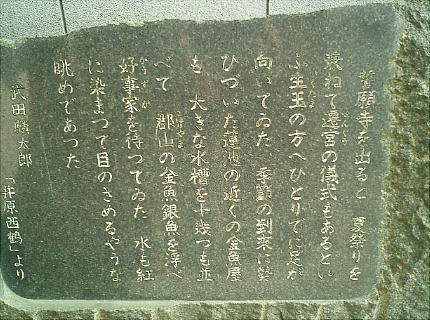 誓願寺を出ると 夏祭りを
兼ねて遷宮の儀式もあるとい
ふ生玉の方へひとりでに足が
向いてゐた 季節の到来に勢
ひづいた蓮池の近くの金魚屋
も 大きな水槽を十幾つも並
べて 郡山の金魚銀魚を浮べ
好事家を待つてゐた 水も紅
に染まつて目のさめるやうな
眺めであつた
武田麟太郎 「井原西鶴」より